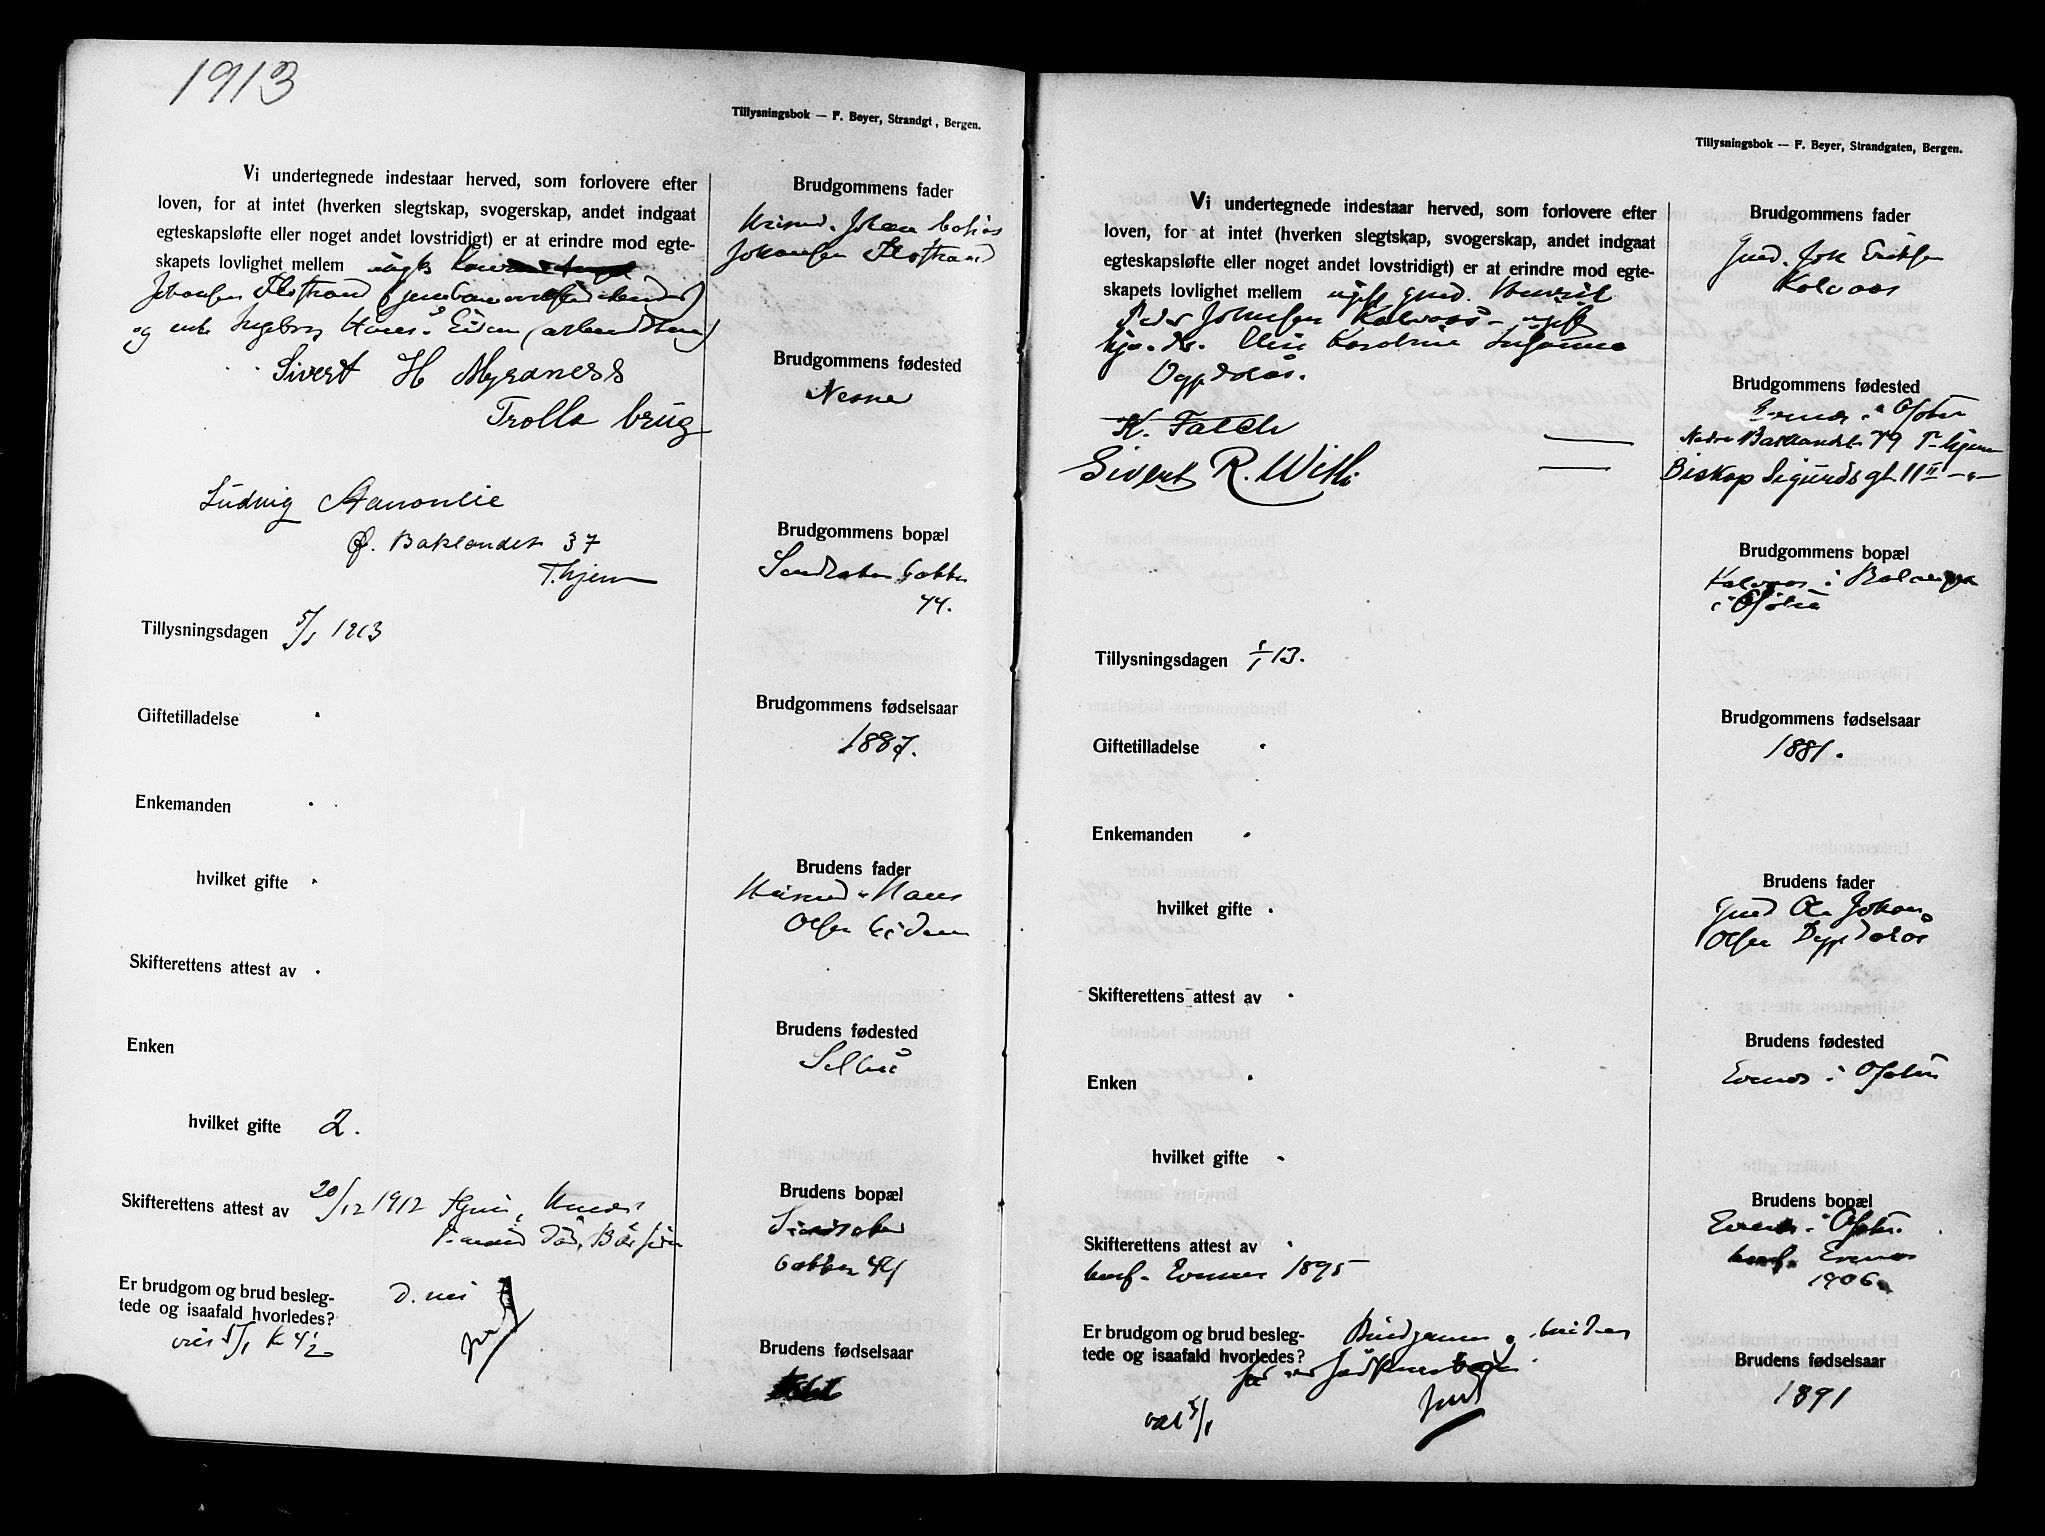 1913
Tillysningsbok — F. Beyer, Strandgt, Bergen.
Vi undertegnede indestaar herved, som forlovere efter
loven, for at intet (hverken slegtskap, svogerskap, andet indgaat
egteskapsløfte eller noget andet lovstridigt) er at erindre mod egte-
skapets lovlighet mellem
Johansen
og enke Ingeborg Hans. Eidem
Sivert H Myrdness
Trolla brug
Ludvig
Ø. Baklandet 37
T.hjem
Tillysningsdagen 5/1 1913
Giftetilladelse
Enkemanden
hvilket gifte
Skifterettens attest av
Enken
hvilket gifte 2.
Skifterettens attest av 20/12 1912
Er brudgom og brud besleg-
tede og isaafald hvorledes?
D. nei
viet 5/1 K 4½
Brudgommens fader
Johan
Johansen
Brudgommens fødested
Nesne
Brudgommens bopæl
bakken
44.
Brudgommens fødselsaar
1887.
Brudens fader
Husmd. Hans
Olsen Eidem
Brudens fødested
Selbu
Brudens bopæl
bakken 44
Brudens fødselsaar
Tillysningsbok — F. Beyer, Strandgaten, Bergen.
Vi undertegnede indestaar herved, som forlovere efter
loven, for at intet (hverken slegtskap, svogerskap, andet indgaat
egteskapsløfte eller noget andet lovstridigt) er at erindre mod egte-
skapets lovlighet mellem ugift gmd. Henrik
Peder Johnsen Kalvaas - ugift
Karoline Susanna
Dypdalas.
K. Falch
Sivert R. With
Tillysningsdagen 5/1 13.
Giftetilladelse
Enkemanden
hvilket gifte
Skifterettens attest av
Enken
hvilket gifte
Skifterettens attest av
konf. Evenes 1895
Er brudgom og brud besleg-
tede og isaafald hvorledes?
Brudgommen o. bruden
viet 5/1
Brudgommens fader
Gmd. Joh Eriksen
Kalvaas
Brudgommens fødested
Evenes i Ofoten
Nedre Baklandet 79 T-hjem
Biskop Sigurds gt. 11 II -"-
Brudgommens bopæl
Kalvaas i Balangen
i Ofoten
Brudgommens fødselsaar
1881.
Brudens fader
Gmd Ole Johan
Olsen Dypdalas
Brudens fødested
Evenes i Ofoten
Brudens bopæl
Evenes i Ofoten
konf. Evenes
1906.
Brudens fødselsaar
1891